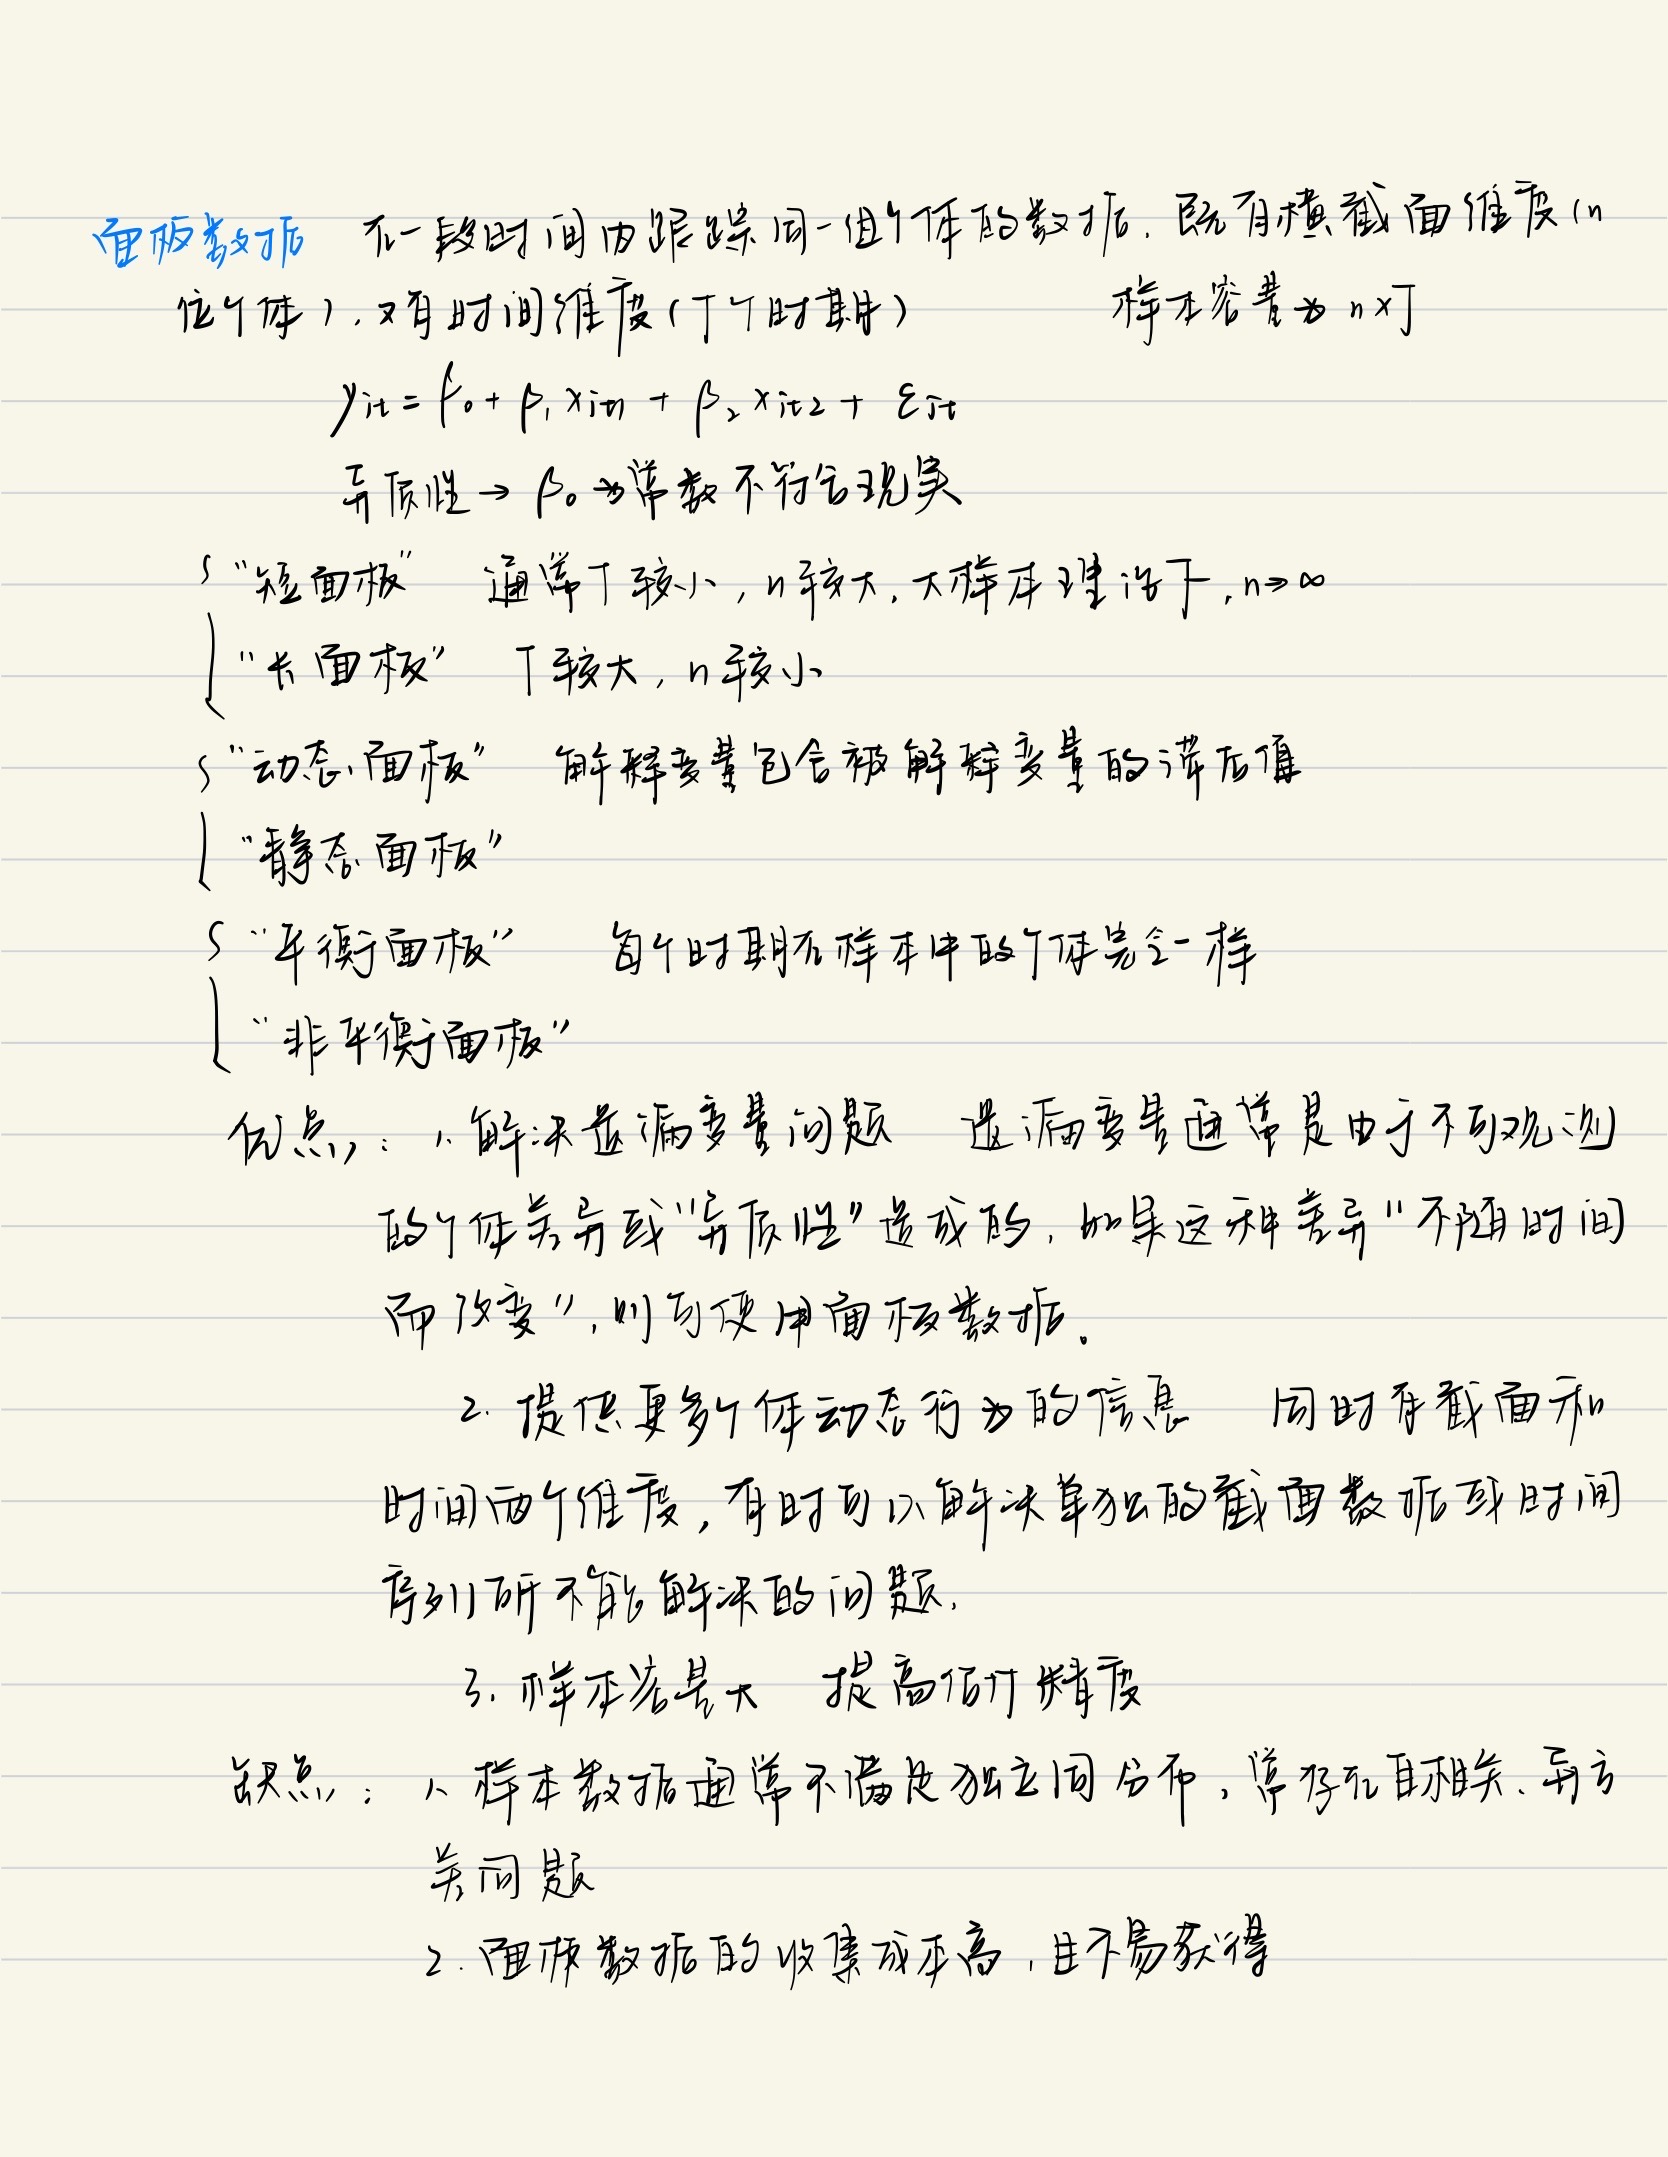 面板数据 在一段时间内跟踪同一组个体的数据. 既有横截面维度(n
位个体), 又有时间维度(T个时期) 样本容量为 n×T
yit = β0 + β1 xit1 + β2 xit2 + εit
异质性 → β0 为常数不符合现实
"短面板" 通常T较小, n较大. 大样本理论下, n→∞
"长面板" T较大, n较小
"动态面板" 解释变量包含被解释变量的滞后值
"静态面板"
"平衡面板" 每个时期在样本中的个体完全一样
"非平衡面板"
优点: 1. 解决遗漏变量问题 遗漏变量通常是由于不可观测
的个体差异或"异质性"造成的, 如果这种差异"不随时间
而改变", 则可使用面板数据。
2. 提供更多个体动态行为的信息 同时有截面和
时间两个维度, 有时可以解决单独的截面数据或时间
序列所不能解决的问题.
3. 样本容量大 提高估计精度
缺点: 1. 样本数据通常不满足独立同分布, 常存在自相关、异方
差问题
2. 面板数据的收集成本高, 且不易获得